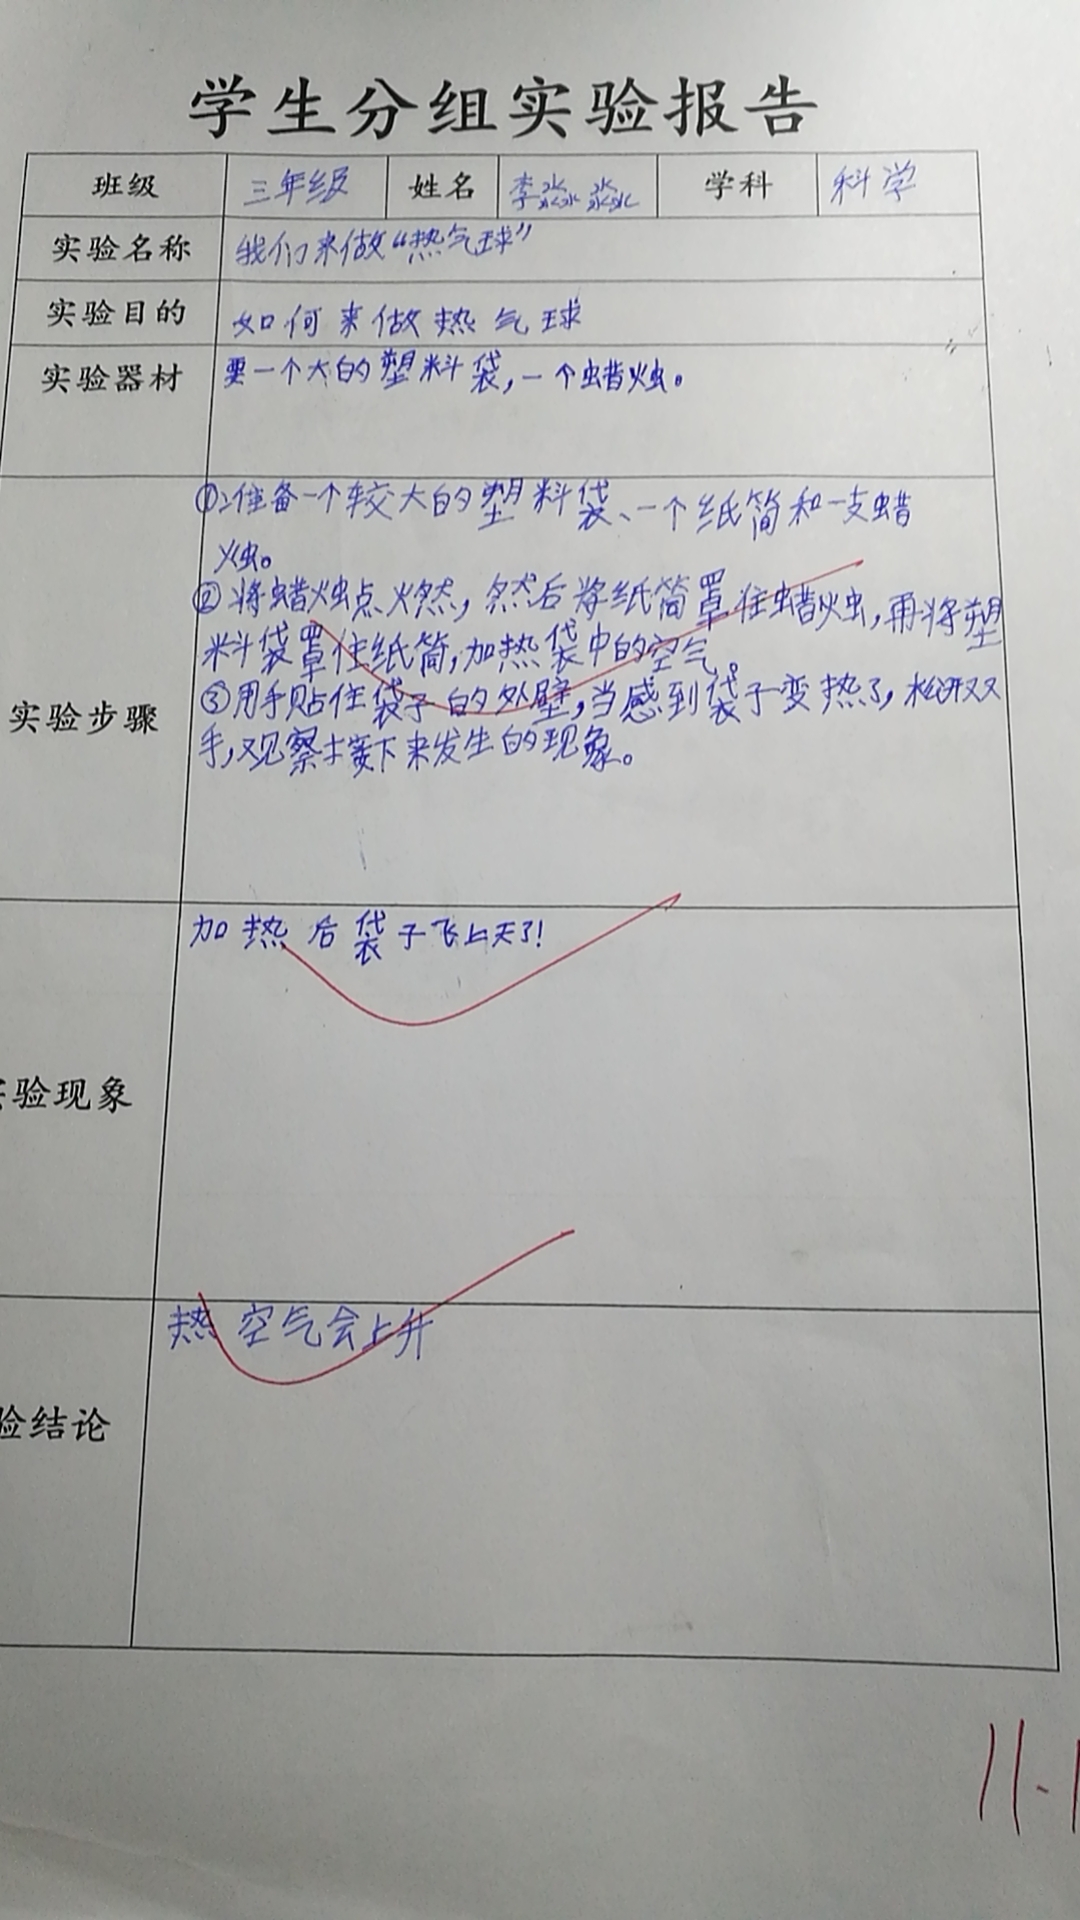 学生分组实验报告
班级 三年级 姓名 李淼淼 学科 科学
实验名称 我们来做“热气球”
实验目的 如何来做热气球
实验器材 要一个大的塑料袋，一个蜡烛。
①准备一个较大的塑料袋、一个纸筒和一支蜡
烛。
②将蜡烛点火燃，然后将纸筒罩住蜡烛，再将塑
料袋罩住纸筒，加热袋中的空气。
实验步骤 ③用手贴住袋子的外壁，当感到袋子变热了，松开双
手，观察接下来发生的现象。
加热后袋子飞上天了！
验现象
热空气会上升
验结论
11.1